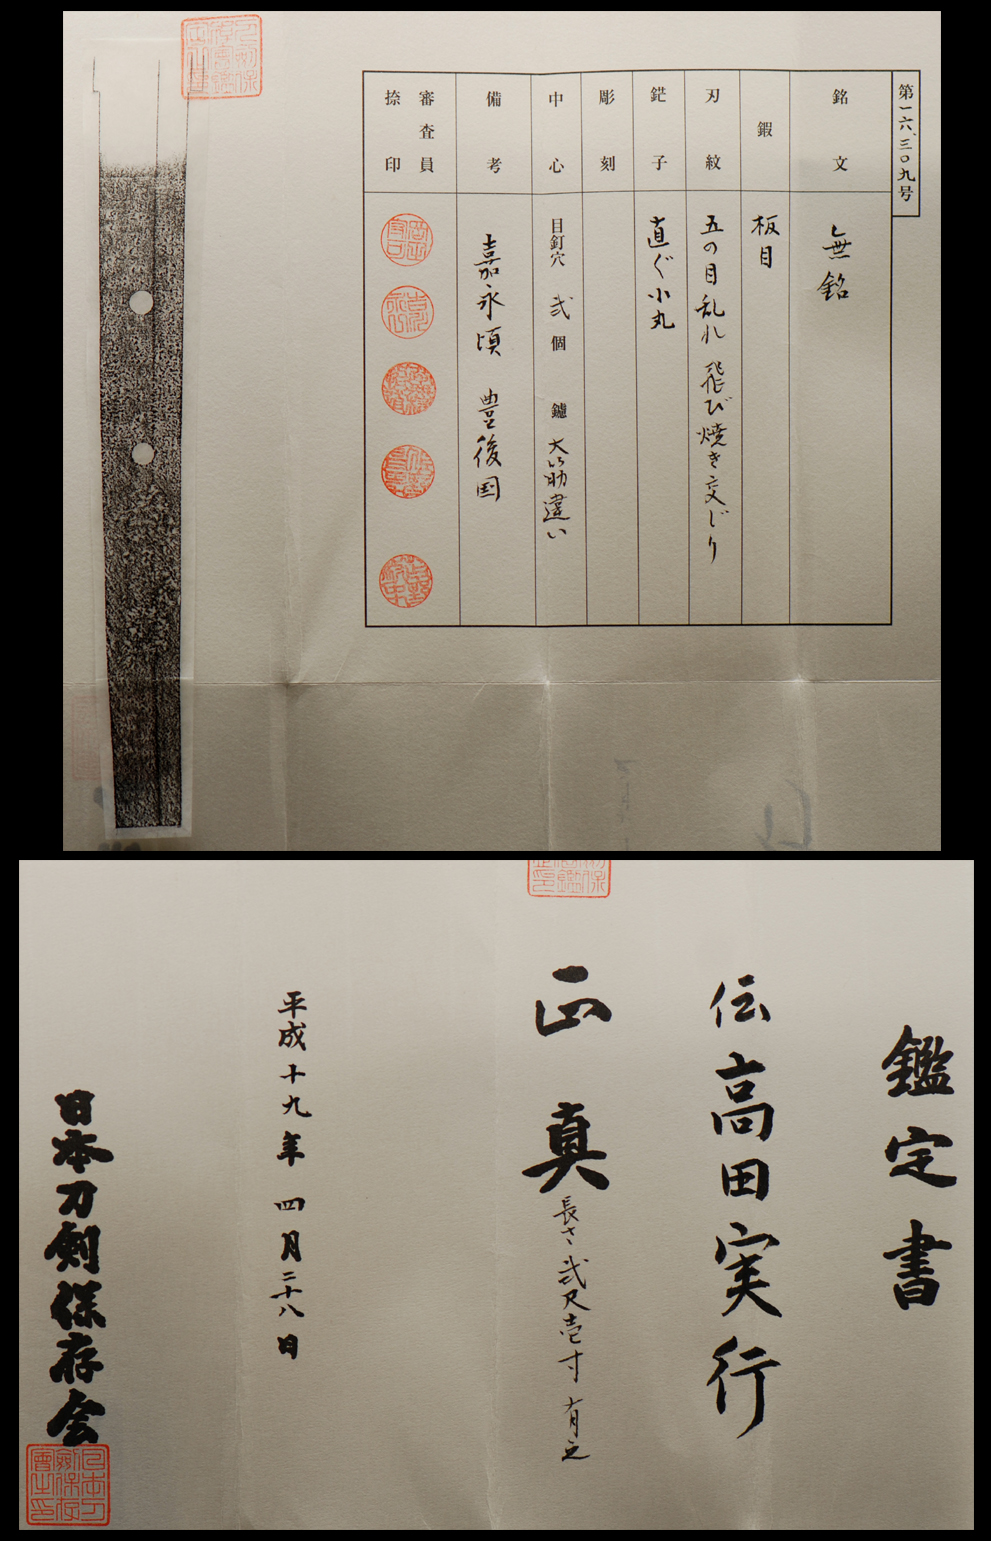 第一六、三〇九号
銘文
無銘
鍜
板目
刃紋
五の目乱れ 飛び焼き交じり
鋩子
直ぐ小丸
彫刻
中心
目釘穴 弐個 鑢 大筋違い
備考
嘉永頃 豊後国
審査員
捺印
鑑定書
伝高田実行
正真
長さ弐尺壱寸有之
平成十九年四月二十八日
日本刀剣保存会